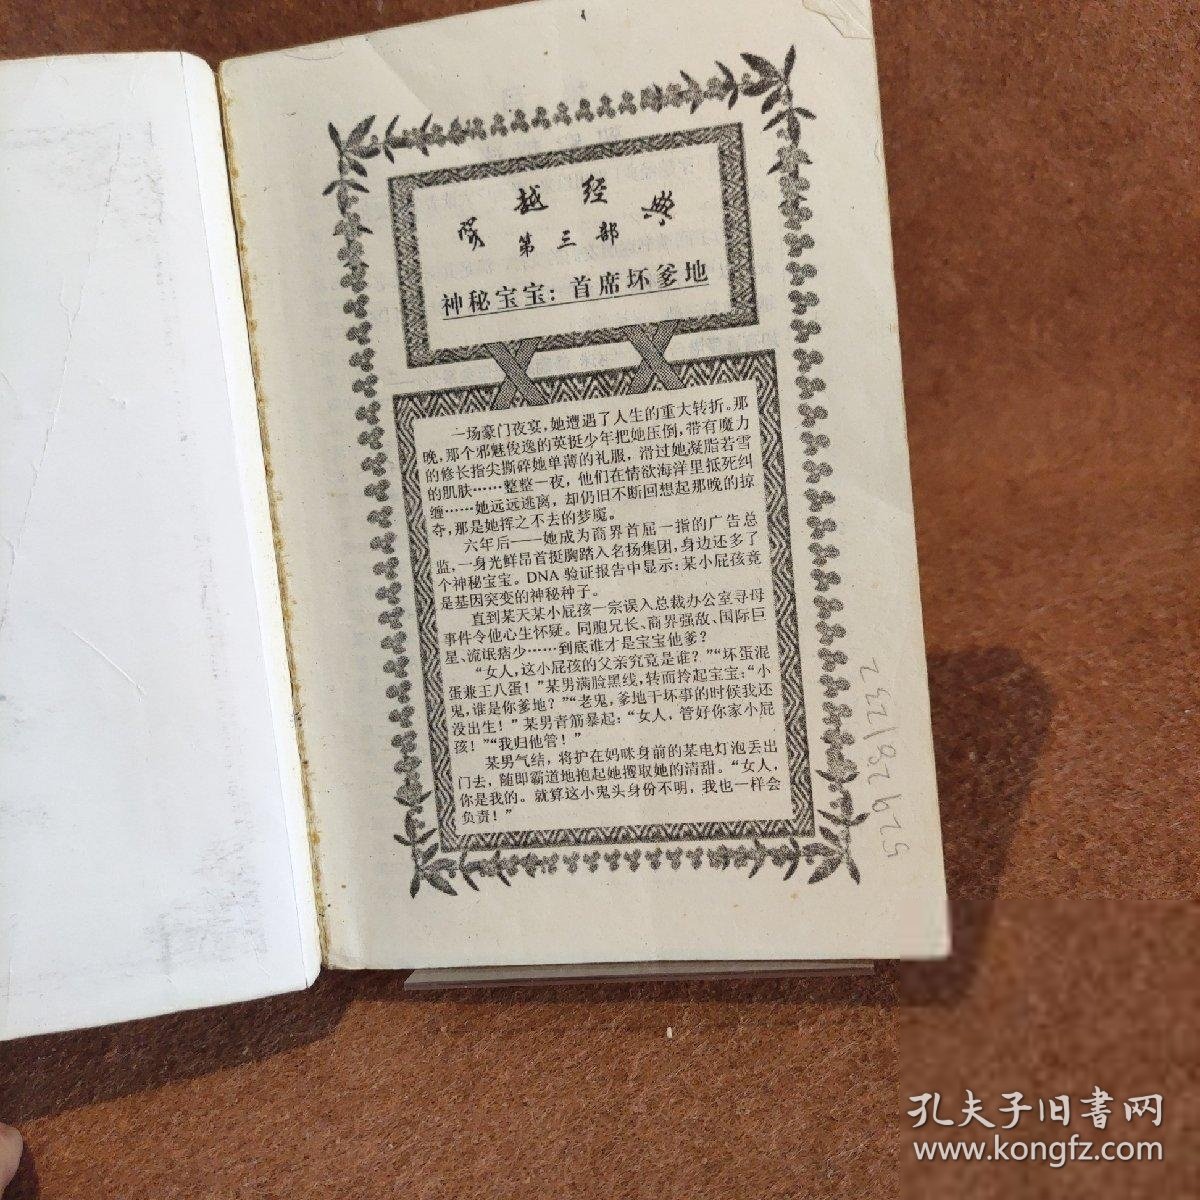 穿越经典
第三部
神秘宝宝：首席坏爹地
一场豪门夜宴，她遭遇了人生的重大转折。那
晚，那个邪魅俊逸的英挺少年把她压倒，带有魔力
的修长指尖撕碎她单薄的礼服，滑过她凝脂若雪
的肌肤……整整一夜，他们在情欲海洋里抵死纠
缠……她远远逃离，却仍旧不断回想起那晚的掠
夺，那是她挥之不去的梦魇。
六年后——她成为商界首屈一指的广告总
监，一身光鲜昂首挺胸踏入名扬集团，身边还多了
个神秘宝宝。DNA验证报告中显示：某小屁孩竟
是基因突变的神秘种子。
直到某天某小屁孩一宗误入总裁办公室寻母
事件令他心生怀疑。同胞兄长、商界强敌、国际巨
星、流氓痞少……到底谁才是宝宝他爹？
“女人，这小屁孩的父亲究竟是谁？”“坏蛋混
蛋兼王八蛋！”某男满脸黑线，转而拎起宝宝：“小
鬼，谁是你爹地？”“老鬼，爹地干坏事的时候我还
没出生！”某男青筋暴起：“女人，管好你家小屁
孩！”“我归他管！”
某男气结，将护在妈咪身前的某电灯泡丢出
门去，随即霸道地抱起她攫取她的清甜。“女人，
你是我的。就算这小鬼头身份不明，我也一样会
负责！”
孔夫子旧书网
www.kongfz.com